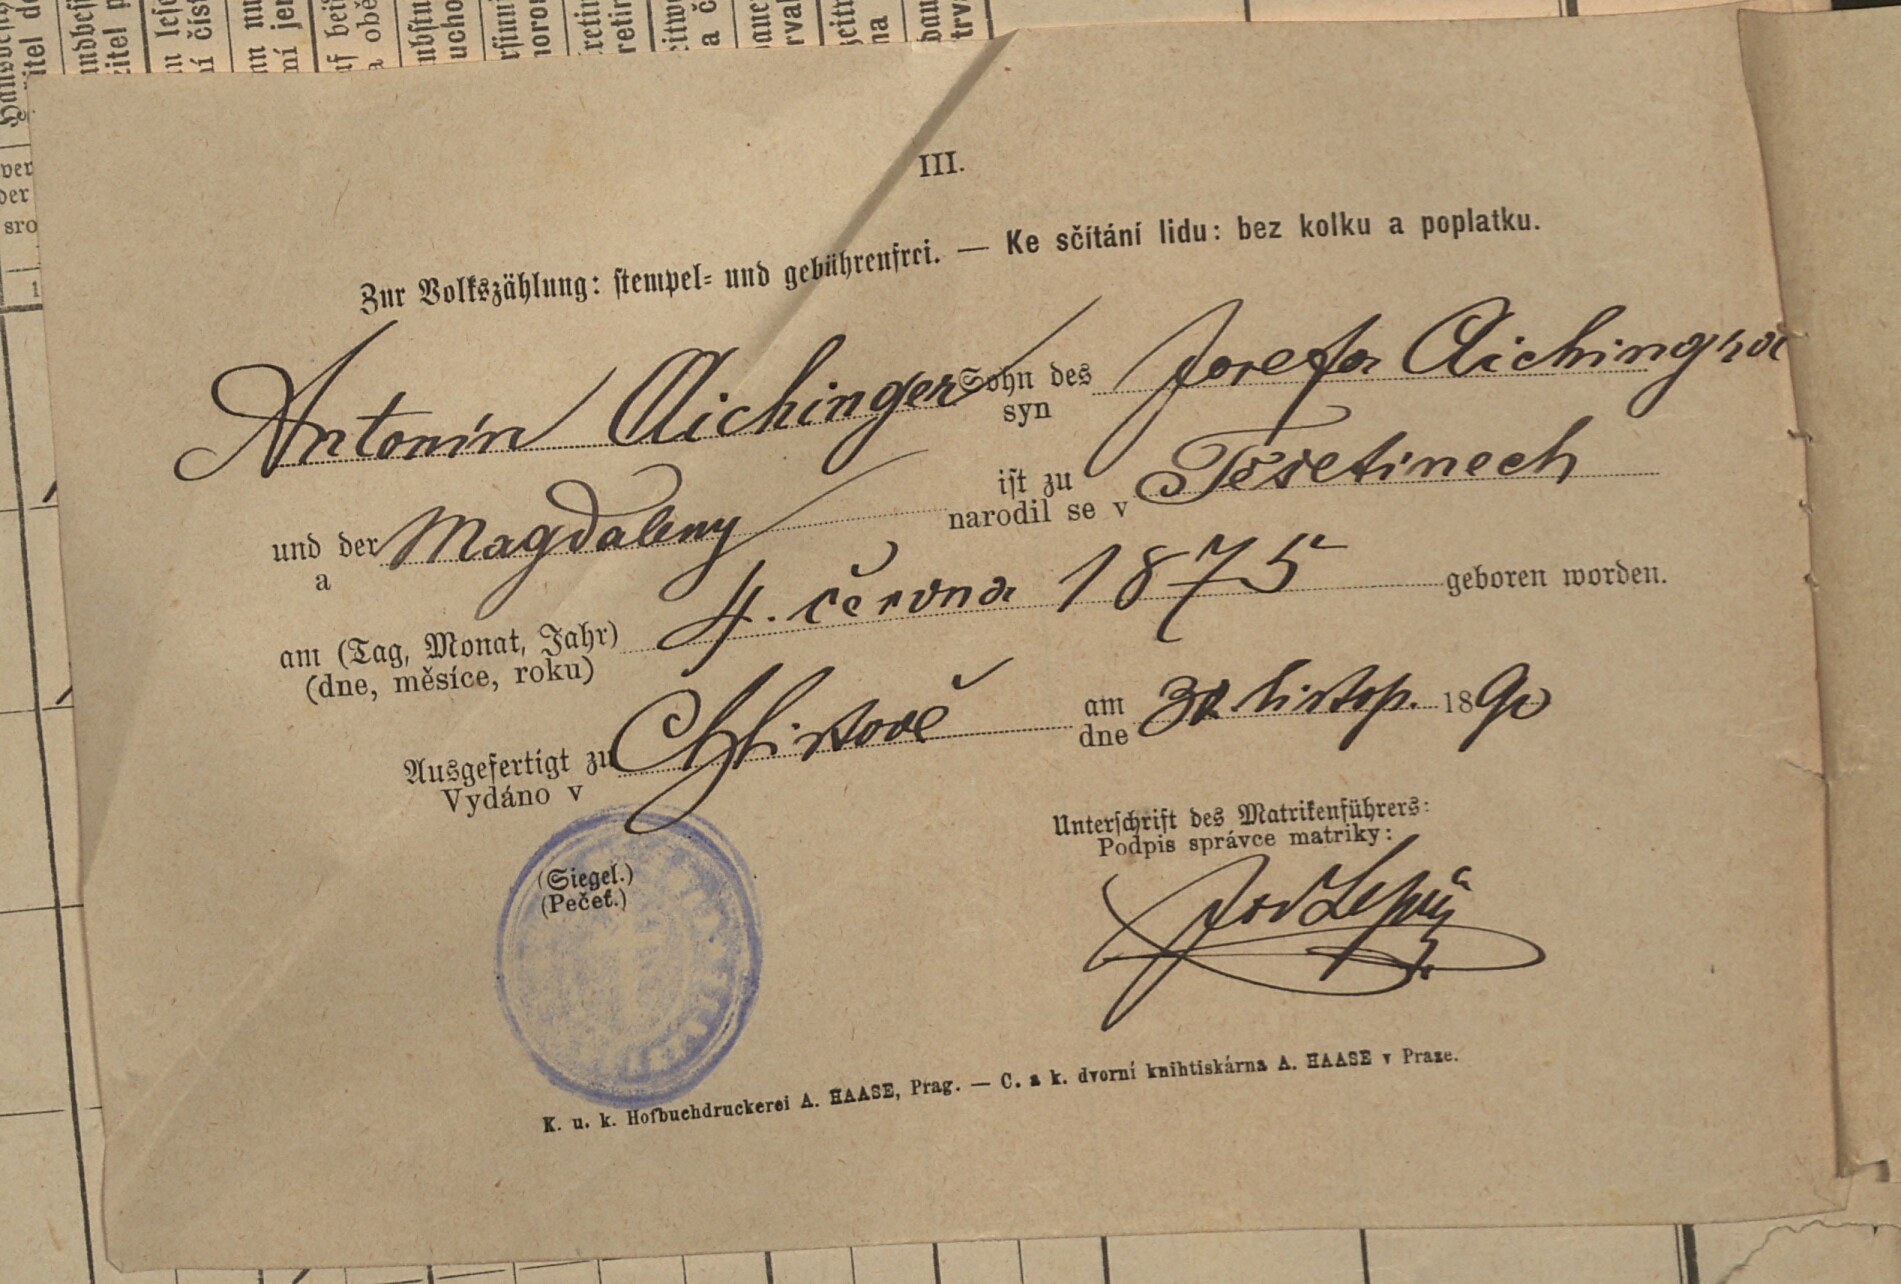 III.
Zur Volkszählung: stempel- und gebührenfrei. — Ke sčítání lidu: bez kolku a poplatku.
Antonín Aichinger Sohn des Josefa Aichingra
syn
und der Magdaleny ist zu Těšetinech
a narodil se v
am (Tag, Monat, Jahr) 4. června 1875 geboren worden.
(dne, měsíce, roku)
Ausgefertigt zu Chlistově am 30 listop. 1890
Vydáno v dne
Unterschrift des Matrikenführers:
Podpis správce matriky:
(Siegel.)
(Pečeť.)
K. u. k. Hofbuchdruckerei A. HAASE, Prag. — C. a k. dvorní knihtiskárna A. HAASE v Praze.